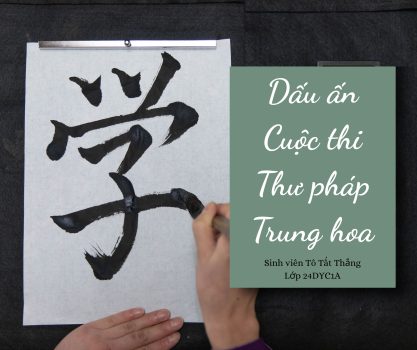 学
Dấu ấn
Cuộc thi
Thư pháp
Trung hoa
Sinh viên Tô Tất Thắng
Lớp 24DYC1A